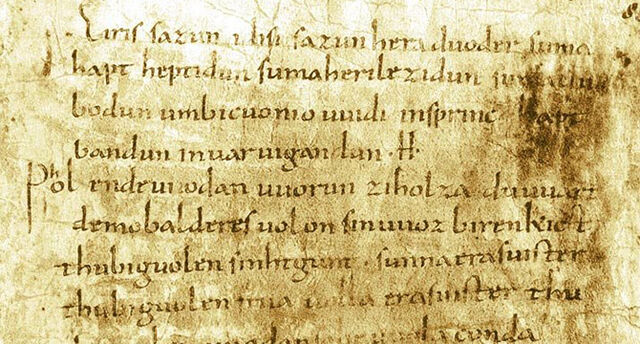 Eiris sazun idisi sazun hera duoder suma
hapt heptidun sumaherilezidun sumaclu
bodun umbicuonio uuidi insprinc hapt
bandun inuar uigandun · H ·
Phol endeuuodan uuorun ziholza du uuart
demobalderes uolon sinuuoz birenkict
thubiguolen sinhtgunt · sunnaerasuister
thubiguolen friia uolla erasuister thu
uuodan uuola conda